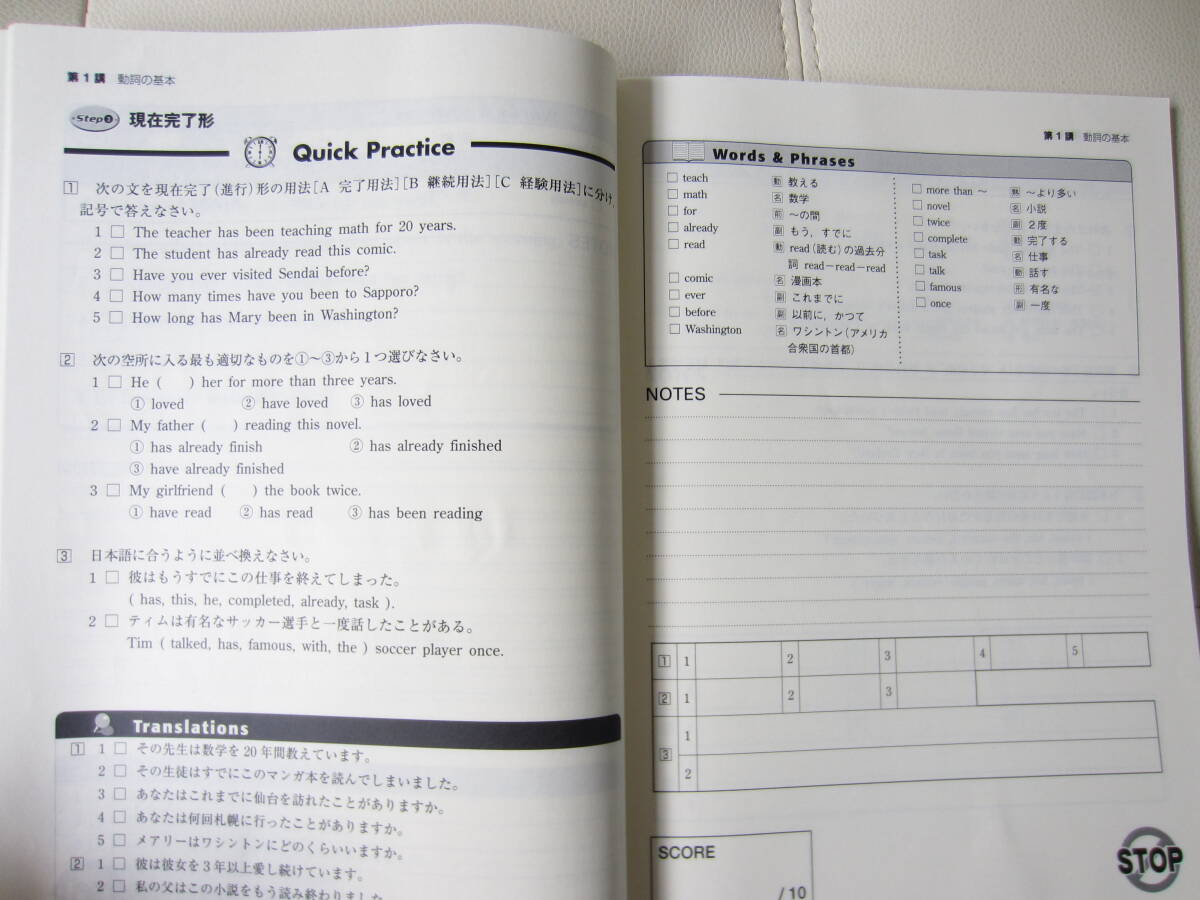 第1講 動詞の基本
Step3 現在完了形
Quick Practice
1 次の文を現在完了(進行)形の用法[A 完了用法][B 継続用法][C 経験用法]に分け,
記号で答えなさい。
1 □ The teacher has been teaching math for 20 years.
2 □ The student has already read this comic.
3 □ Have you ever visited Sendai before?
4 □ How many times have you been to Sapporo?
5 □ How long has Mary been in Washington?
2 次の空所に入る最も適切なものを①～③から1つ選びなさい。
1 □ He (　　) her for more than three years.
① loved ② have loved ③ has loved
2 □ My father (　　) reading this novel.
① has already finish ② has already finished
③ have already finished
3 □ My girlfriend (　　) the book twice.
① have read ② has read ③ has been reading
3 日本語に合うように並べ換えなさい。
1 □ 彼はもうすでにこの仕事を終えてしまった。
( has, this, he, completed, already, task ).
2 □ ティムは有名なサッカー選手と一度話したことがある。
Tim ( talked, has, famous, with, the ) soccer player once.
Translations
1 1 □ その先生は数学を20年間教えています。
2 □ その生徒はすでにこのマンガ本を読んでしまいました。
3 □ あなたはこれまでに仙台を訪れたことがありますか。
4 □ あなたは何回札幌に行ったことがありますか。
5 □ メアリーはワシントンにどのくらいいますか。
2 1 □ 彼は彼女を3年以上愛し続けています。
2 □ 私の父はこの小説をもう読み終わりました
第1講 動詞の基本
Words & Phrases
□ teach 動 教える
□ math 名 数学
□ for 前 ～の間
□ already 副 もう，すでに
□ read 動 read(読む)の過去分
詞 read－read－read
□ comic 名 漫画本
□ ever 副 これまでに
□ before 副 以前に，かつて
□ Washington 名 ワシントン(アメリカ
合衆国の首都)
□ more than ～ 熟 ～より多い
□ novel 名 小説
□ twice 副 2度
□ complete 動 完了する
□ task 名 仕事
□ talk 動 話す
□ famous 形 有名な
□ once 副 一度
NOTES
1 1 2 3 4 5
2 1 2 3
3 1
2
SCORE
/10
STOP